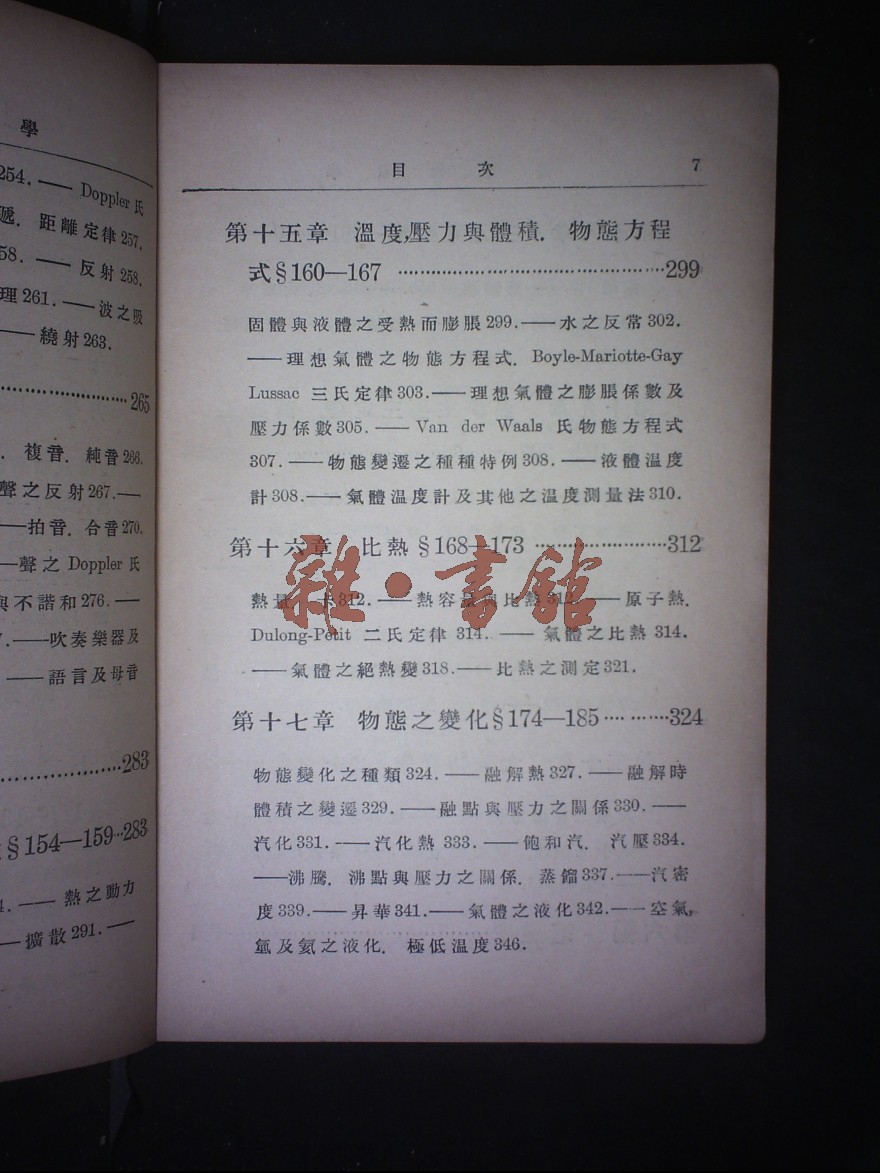 學
254. —— Doppler 氏
遞. 距離定律257.
58. —— 反射 258.
理 261. —— 波之吸
—— 繞射263.
265
. 複音. 純音 266.
聲之反射267.——
——拍音. 合音 270.
——聲之 Doppler 氏
與不諧和276.——
.——吹奏樂器及
——語言及母音
283
§154—159 283
4. —— 熱之動力
— 擴散 291. ——
目 次 7
第十五章 溫度,壓力與體積. 物態方程
式§160—167 299
固體與液體之受熱而膨脹299.——水之反常302.
——理想氣體之物態方程式. Boyle-Mariotte-Gay
Lussac 三氏定律303.——理想氣體之膨脹係數及
壓力係數305.—— Van der Waals 氏物態方程式
307.——物態變遷之種種特例308.——液體溫度
計308.——氣體溫度計及其他之溫度測量法310.
第十六章 比熱§168—173 312
熱量. 卡312.——熱容 比熱 ——原子熱.
Dulong-Petit 二氏定律 314. —— 氣體之比熱 314.
——氣體之絕熱變318.——比熱之測定321.
雜·書館
第十七章 物態之變化§174—185 324
物態變化之種類324.——融解熱327.——融解時
體積之變遷329.——融點與壓力之關係330.——
汽化331.——汽化熱 333.——飽和汽. 汽壓334.
——沸騰. 沸點與壓力之關係. 蒸餾337.——汽密
度339.——昇華341.——氣體之液化342.——空氣,
氫及氦之液化. 極低溫度346.